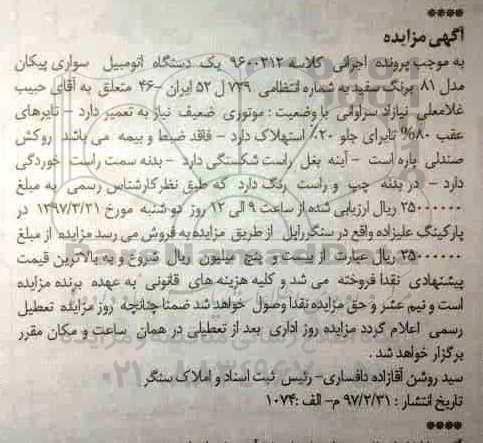 ****
آگهی مزایده
به موجب پرونده اجرائی کلاسه ۹۶۰۰۳۱۲ یک دستگاه اتومبیل سواری پیکان
مدل ۸۱ برنگ سفید به شماره انتظامی ۷۳۹ ل ۵۲ ایران -۴۶ متعلق به آقای حبیب
غلامعلی نیازاد سراوانی با وضعیت : موتوری ضعیف نیاز به تعمیر دارد - تایرهای
عقب ۸۰% تایرای جلو ۲۰% استهلاک دارد - فاقد ضبط و بیمه می باشد روکش
صندلی پاره است - آینه بغل راست شکستگی دارد - بدنه سمت راست خوردگی
دارد - در بدنه چپ و راست رنگ دارد که طبق نظر کارشناس رسمی به مبلغ
۲۵۰۰۰۰۰۰ ریال ارزیابی شده از ساعت ۹ الی ۱۲ روز دوشنبه مورخ ۱۳۹۷/۳/۲۱ در
پارکینگ علیزاده واقع در سنگر رایل از طریق مزایده به فروش می رسد مزایده از مبلغ
۲۵۰۰۰۰۰۰ ریال عبارت از بیست و پنج میلیون ریال شروع و به بالاترین قیمت
پیشنهادی نقدا فروخته می شد و کلیه هزینه های قانونی به عهده برنده مزایده
است و نیم عشر و حق مزایده نقدا وصول خواهد شد ضمنا چنانچه روز مزایده تعطیل
رسمی اعلام گردد مزایده روز اداری بعد از تعطیلی در همان ساعت و مکان مقرر
برگزار خواهد شد .
سید روشن آقازاده دافساری- رئیس ثبت اسناد و املاک سنگر
تاریخ انتشار : ۹۷/۲/۳۱ م- الف :۱۰۷۴
****